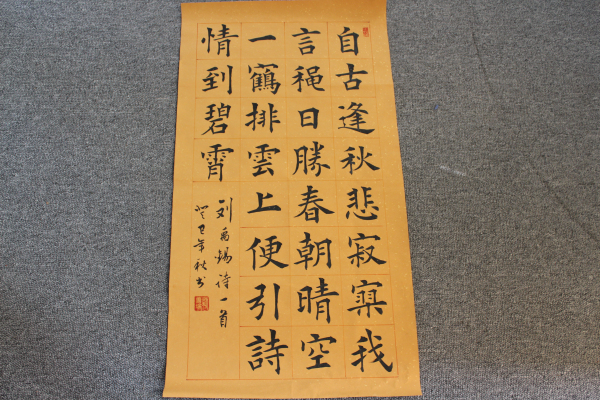 自古逢秋悲寂寞我
言穐日勝春朝晴空
一鶴排雲上便引詩
情到碧霄
刘禹锡诗一首
癸巳年秋书